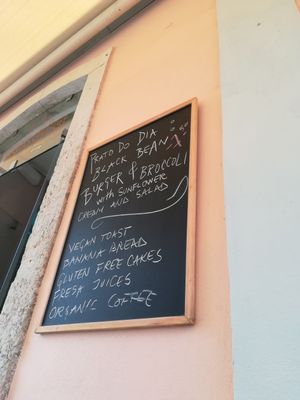 PRATO DO DIA
BLACK BEAN
BURGER & BROCCOLI
WITH SUNFLOWER
CREAM AND SALAD
VEGAN TOAST
BANANA BREAD
GLUTEN FREE CAKES
FRESH JUICES
ORGANIC COFFEE